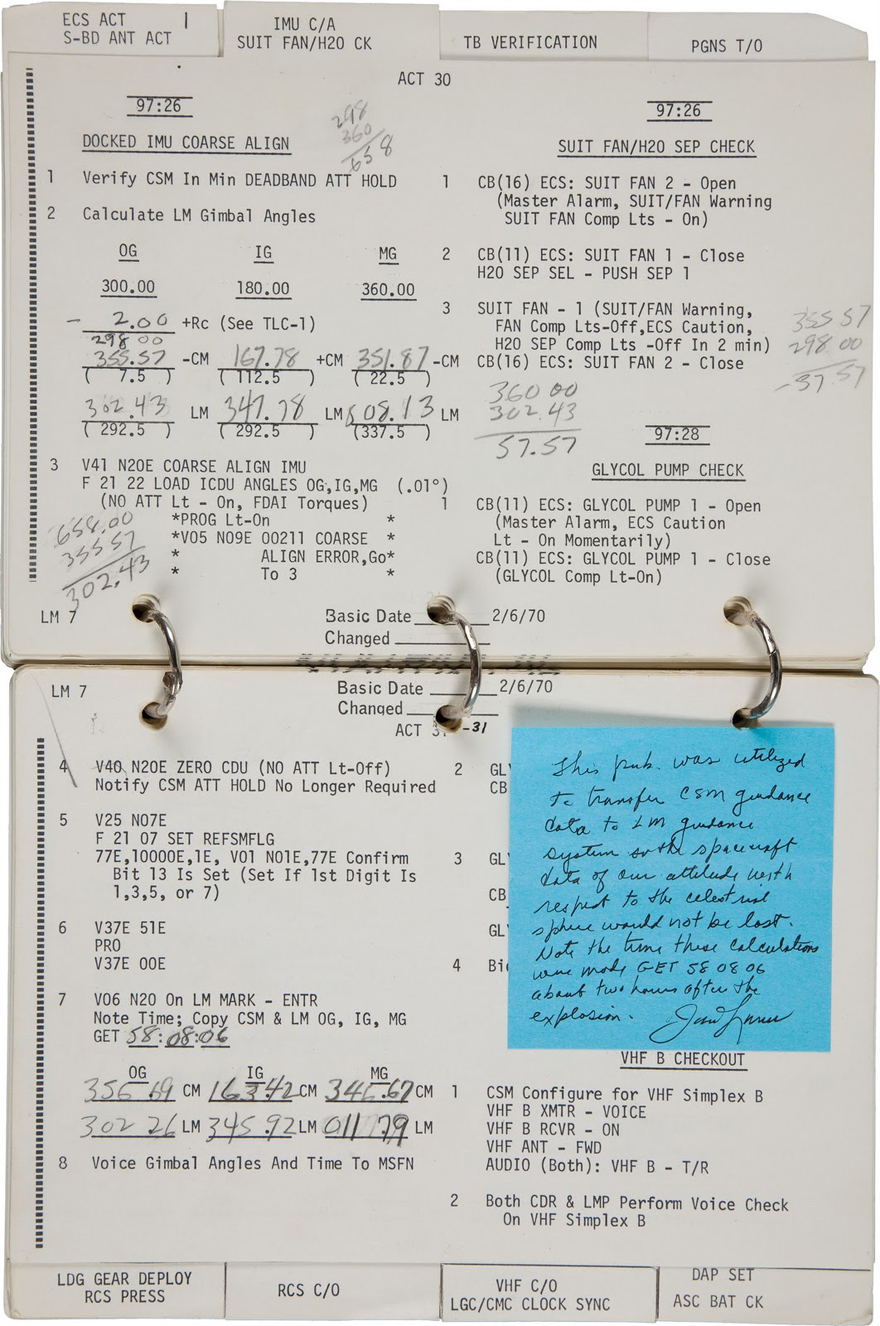 ECS ACT 1
S-BD ANT ACT
IMU C/A
SUIT FAN/H2O CK
TB VERIFICATION
PGNS T/O
ACT 30
97:26
DOCKED IMU COARSE ALIGN
298
360
658
1 Verify CSM In Min DEADBAND ATT HOLD
2 Calculate LM Gimbal Angles
OG IG MG
300.00 180.00 360.00
- 2.00 +Rc (See TLC-1)
298 00
355.57 -CM 167.78 +CM 351.87 -CM
( 7.5 ) ( 112.5 ) ( 22.5 )
302.43 LM 347.78 LM 008.13 LM
( 292.5 ) ( 292.5 ) (337.5 )
3 V41 N20E COARSE ALIGN IMU
F 21 22 LOAD ICDU ANGLES OG,IG,MG (.01°)
(NO ATT Lt - On, FDAI Torques)
*PROG Lt-On *
*V05 N09E 00211 COARSE *
* ALIGN ERROR,Go*
* To 3 *
658.00
355 57
302.43
97:26
SUIT FAN/H2O SEP CHECK
1 CB(16) ECS: SUIT FAN 2 - Open
(Master Alarm, SUIT/FAN Warning
SUIT FAN Comp Lts - On)
2 CB(11) ECS: SUIT FAN 1 - Close
H2O SEP SEL - PUSH SEP 1
3 SUIT FAN - 1 (SUIT/FAN Warning,
FAN Comp Lts-Off,ECS Caution,
H2O SEP Comp Lts -Off In 2 min)
CB(16) ECS: SUIT FAN 2 - Close
355 57
298 00
-57.57
360 00
302.43
57.57
97:28
GLYCOL PUMP CHECK
1 CB(11) ECS: GLYCOL PUMP 1 - Open
(Master Alarm, ECS Caution
Lt - On Momentarily)
CB(11) ECS: GLYCOL PUMP 1 - Close
(GLYCOL Comp Lt-On)
LM 7
Basic Date 2/6/70
Changed
LM 7
Basic Date 2/6/70
Changed
ACT 31 -31
4 V40 N20E ZERO CDU (NO ATT Lt-Off)
Notify CSM ATT HOLD No Longer Required
5 V25 N07E
F 21 07 SET REFSMFLG
77E,10000E,1E, V01 N01E,77E Confirm
Bit 13 Is Set (Set If 1st Digit Is
1,3,5, or 7)
6 V37E 51E
PRO
V37E 00E
7 V06 N20 On LM MARK - ENTR
Note Time; Copy CSM & LM OG, IG, MG
GET 58:08:06
OG IG MG
356 69 CM 163.42 CM 346.67 CM
302 26 LM 345.92 LM 011 79 LM
8 Voice Gimbal Angles And Time To MSFN
2 GLY
CB
3 GLY
CB
GLY
4
This pub. was utilized
to transfer CSM guidance
data to LM guidance
system so the spacecraft
data of our attitude with
respect to the celestrial
sphere would not be lost.
Note the time these calculations
were made GET 58 08 06
about two hours after the
explosion.
VHF B CHECKOUT
1 CSM Configure for VHF Simplex B
VHF B XMTR - VOICE
VHF B RCVR - ON
VHF ANT - FWD
AUDIO (Both): VHF B - T/R
2 Both CDR & LMP Perform Voice Check
On VHF Simplex B
LDG GEAR DEPLOY
RCS PRESS
RCS C/O
VHF C/O
LGC/CMC CLOCK SYNC
DAP SET
ASC BAT CK